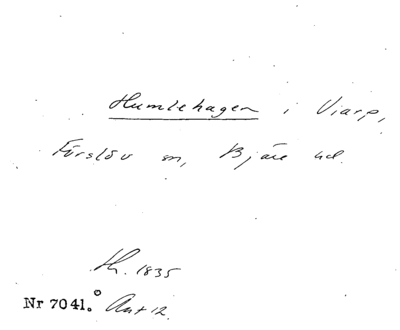 Humlehagen i Viarp,
Förslöv sn, Bjäre hd.
Sk. 1835
Nr 7041. Ant 12.